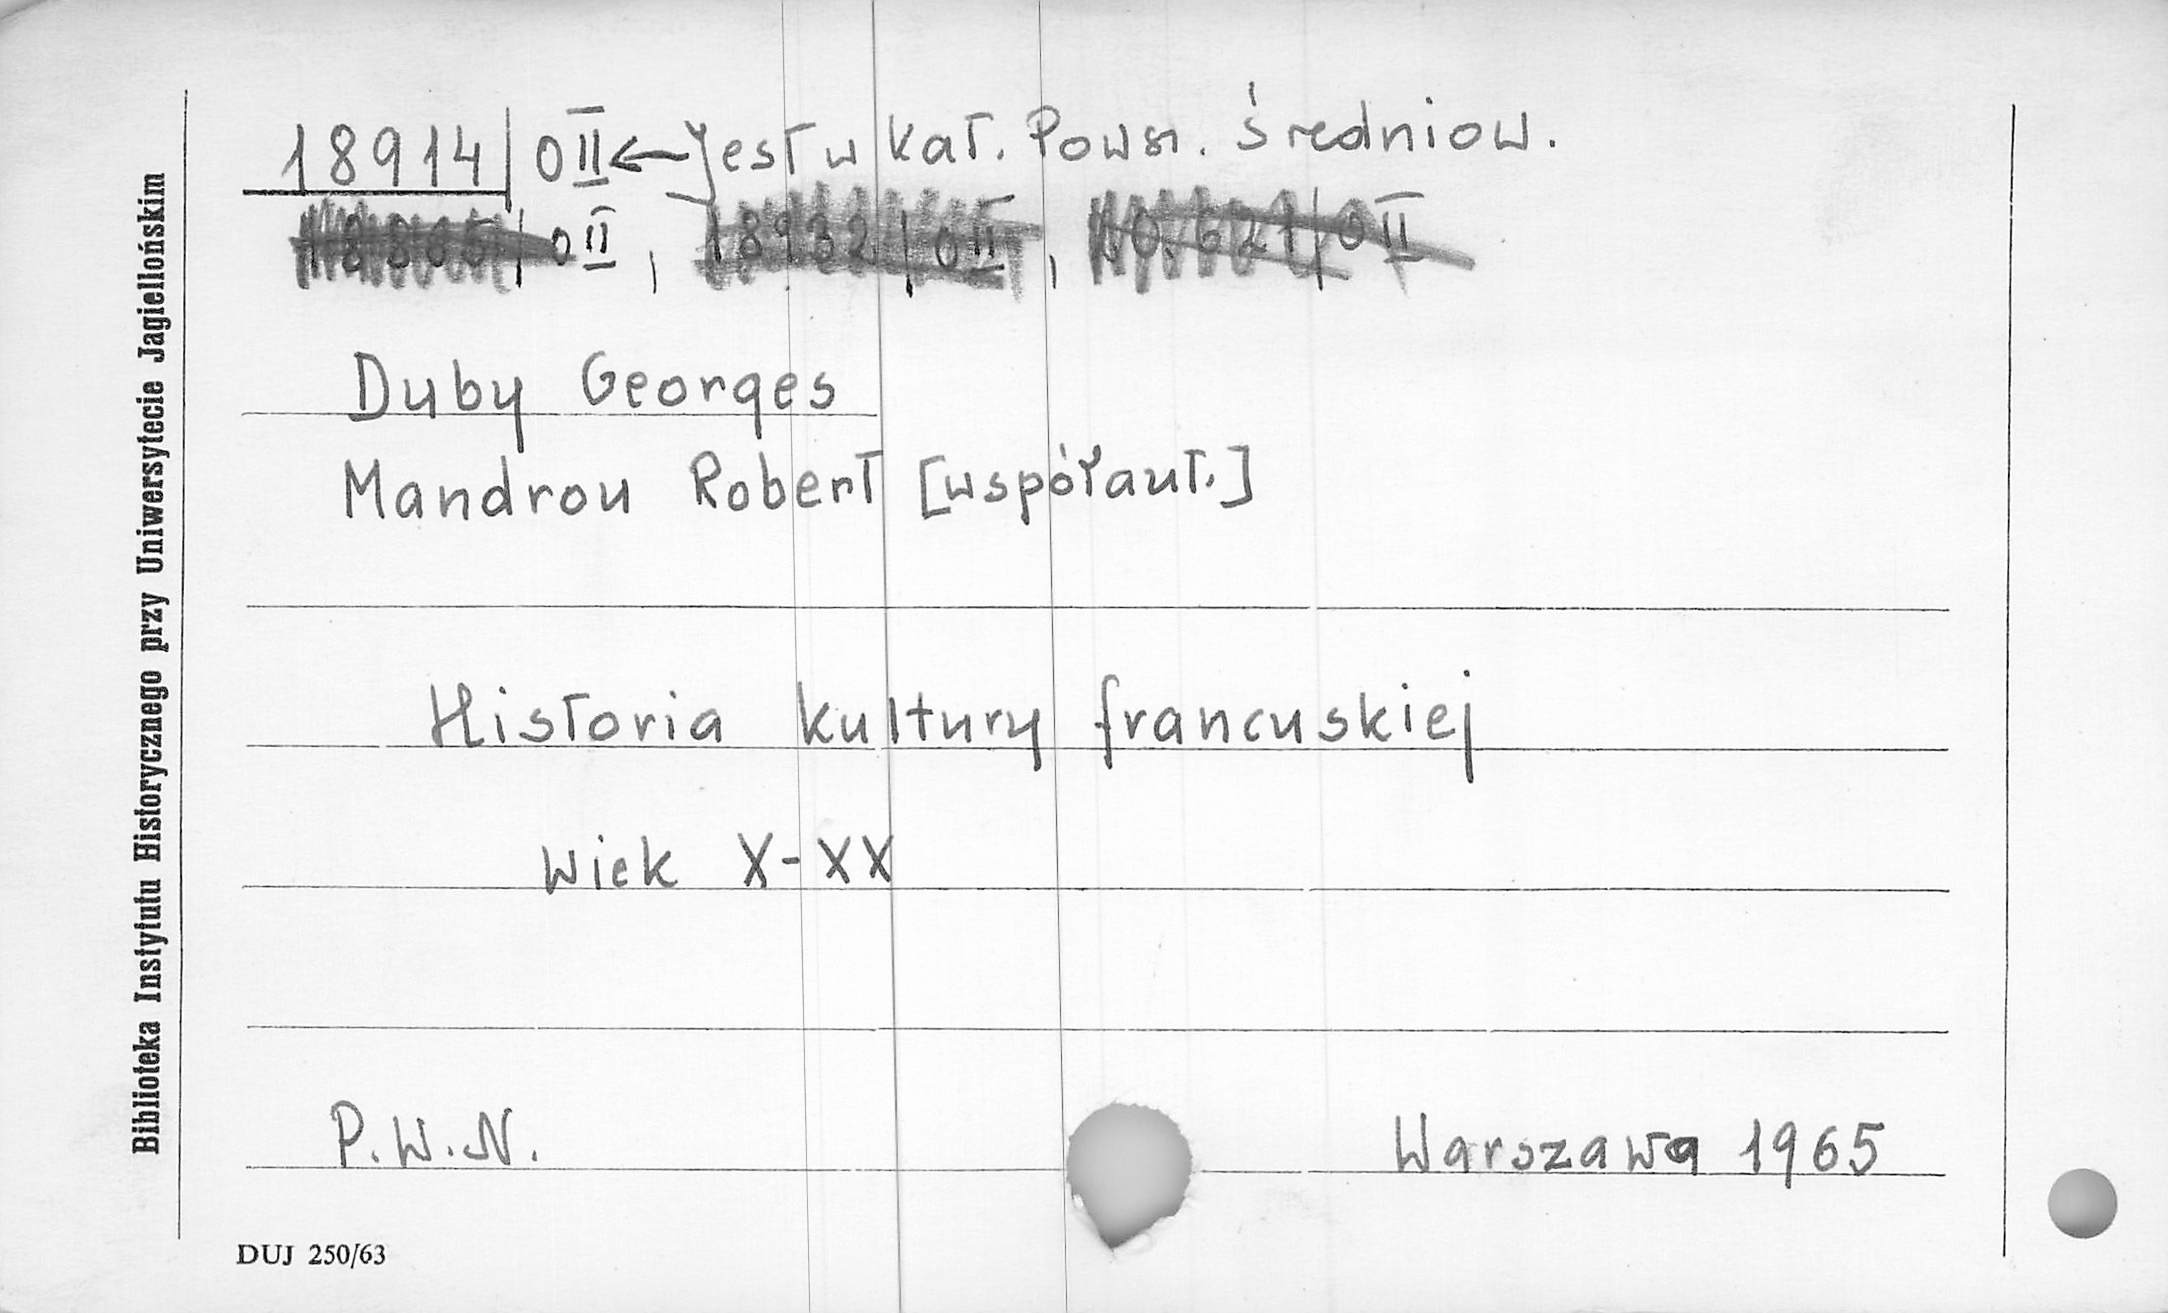 18914/0II ← Jest w kat. Powsz. średniow.
0II, 18932/0II, 10.621/0II
Duby Georges
Mandrou Robert [współaut.]
Historia kultury francuskiej
Wiek X-XX
P.W.N. Warszawa 1965
DUJ 250/63
Biblioteka Instytutu Historycznego przy Uniwersytecie Jagiellońskim